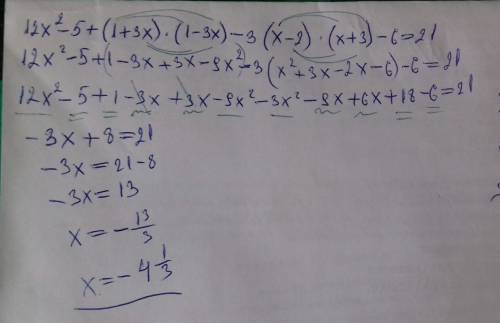 12x²-5+(1+3x)·(1-3x)-3(x-2)·(x+3)-6=21
12x²-5+(1-3x+3x-9x²)-3(x²+3x-2x-6)-6=21
12x²-5+1-3x+3x-9x²-3x²-9x+6x+18-6=21
-3x+8=21
-3x=21-8
-3x=13
x=-13/3
x=-4 1/3